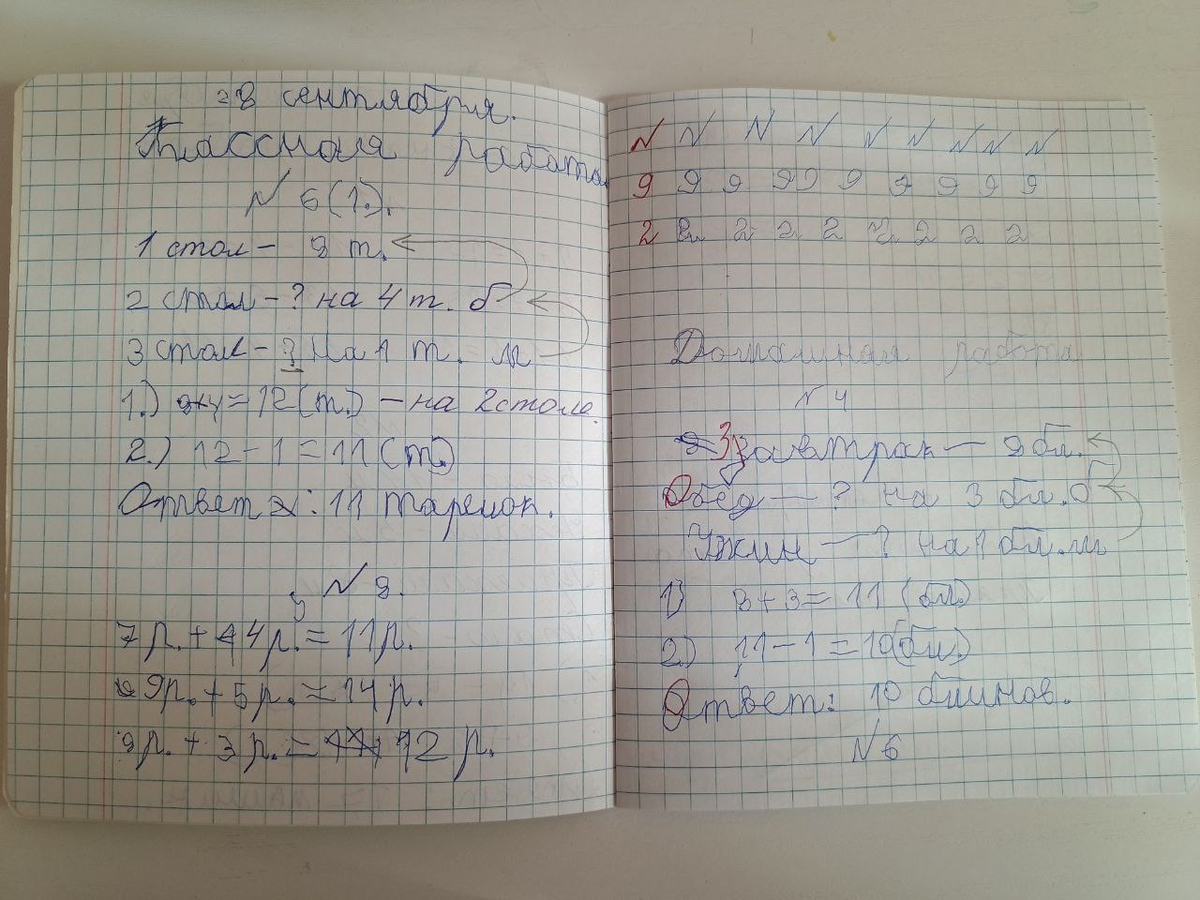 28 сентября.
Классная работа.
№ 6(1.).
1 стол - 8 т.
2 стол - ? на 4 т. б
3 стол - ? на 1 т. м
1.) 8+4=12(т.) - на 2 столе.
2.) 12-1=11(т.)
Ответ: 11 тарелок.
№ 8.
7 р. + 4 р. = 11 р.
9 р. + 5 р. = 14 р.
9 р. + 3 р. = 12 р.
N N N N N N N N N
9 9 9 9 9 9 9 9 9 9
2 2 2 2 2 2 2 2 2
Домашняя работа
№ 4
Завтрак - 8 бл.
Обед - ? на 3 бл. б
Ужин - ? на 1 бл. м
1) 8+3=11 (бл.)
2.) 11-1=10(бл.)
Ответ: 10 блинов.
№ 6